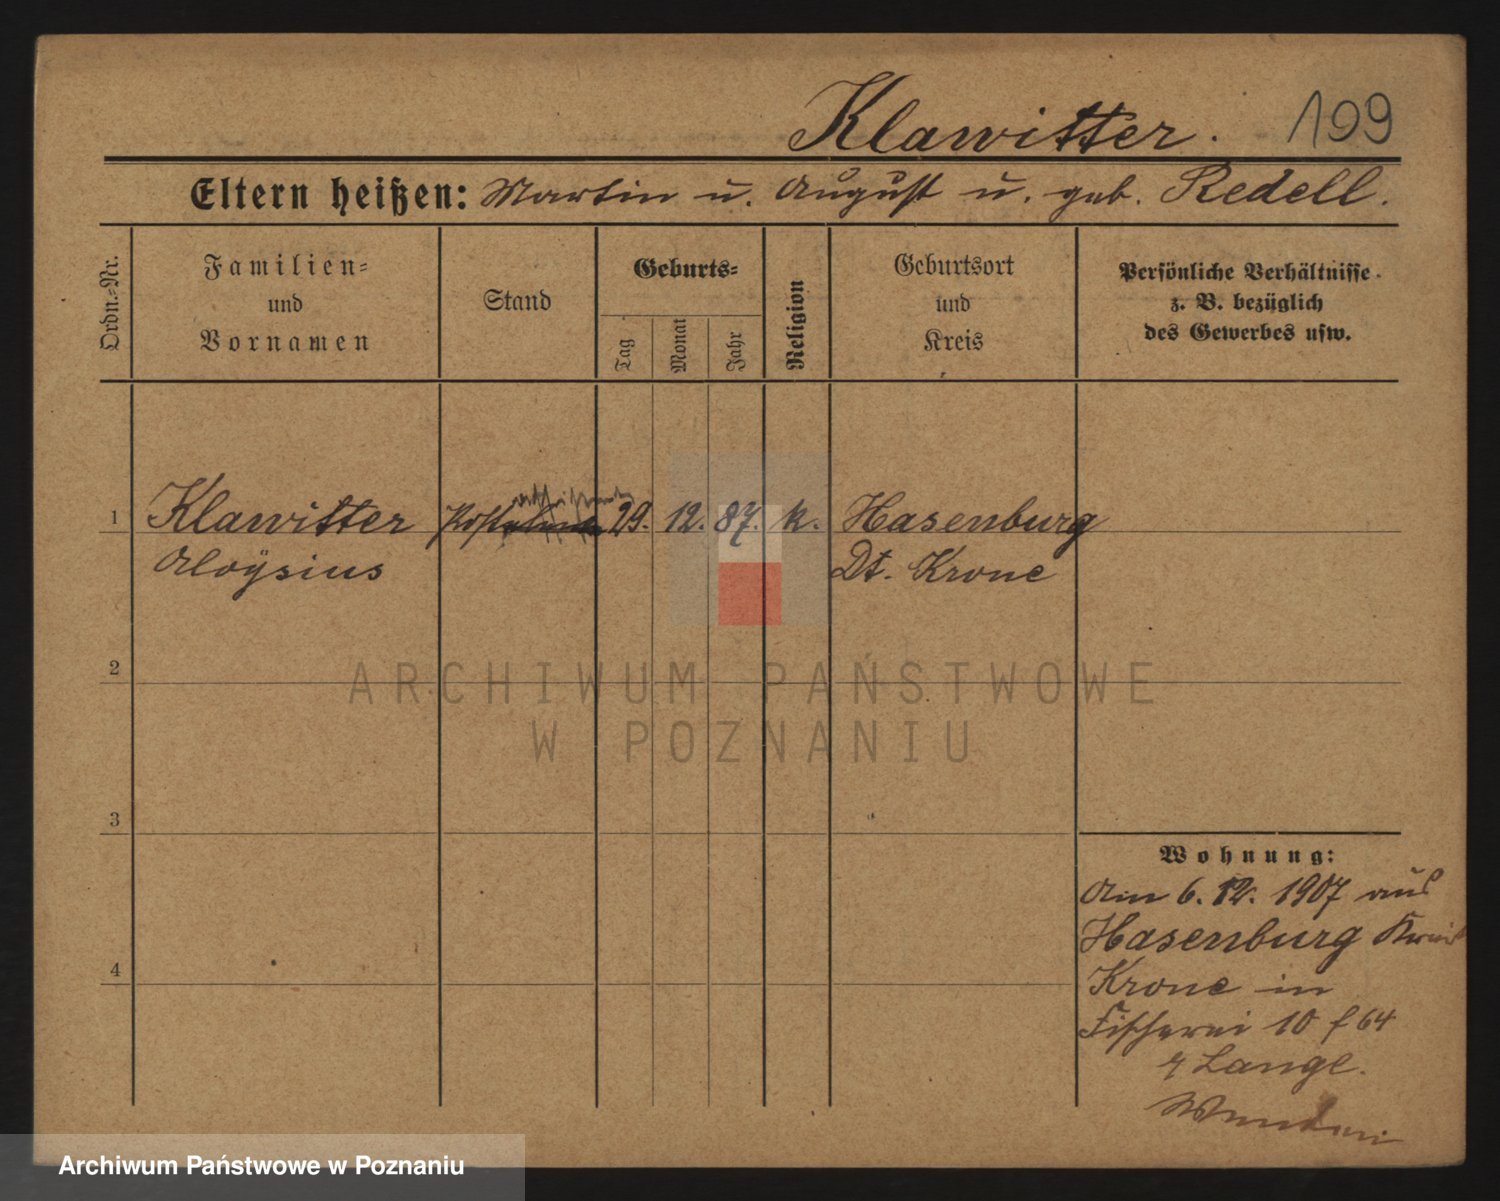 Klawitter. 199
Eltern heißen: Martin u. August u. geb. Redell.
Ordn.=Nr.
Familien=
und
Vornamen
Stand
Geburts=
Tag
Monat
Jahr
Religion
Geburtsort
und
Kreis
Persönliche Verhältnisse
z. B. bezüglich
des Gewerbes usw.
1 Klawitter 29. 12. 87. k. Hasenburg
Aloÿsius Dt. Krone
2
3
4
Wohnung:
Am 6. 12. 1907 aus
Hasenburg Kreis
Krone in
Fischerei 10 f 64
Lange.
ARCHIWUM PAŃSTWOWE
W POZNANIU
Archiwum Państwowe w Poznaniu